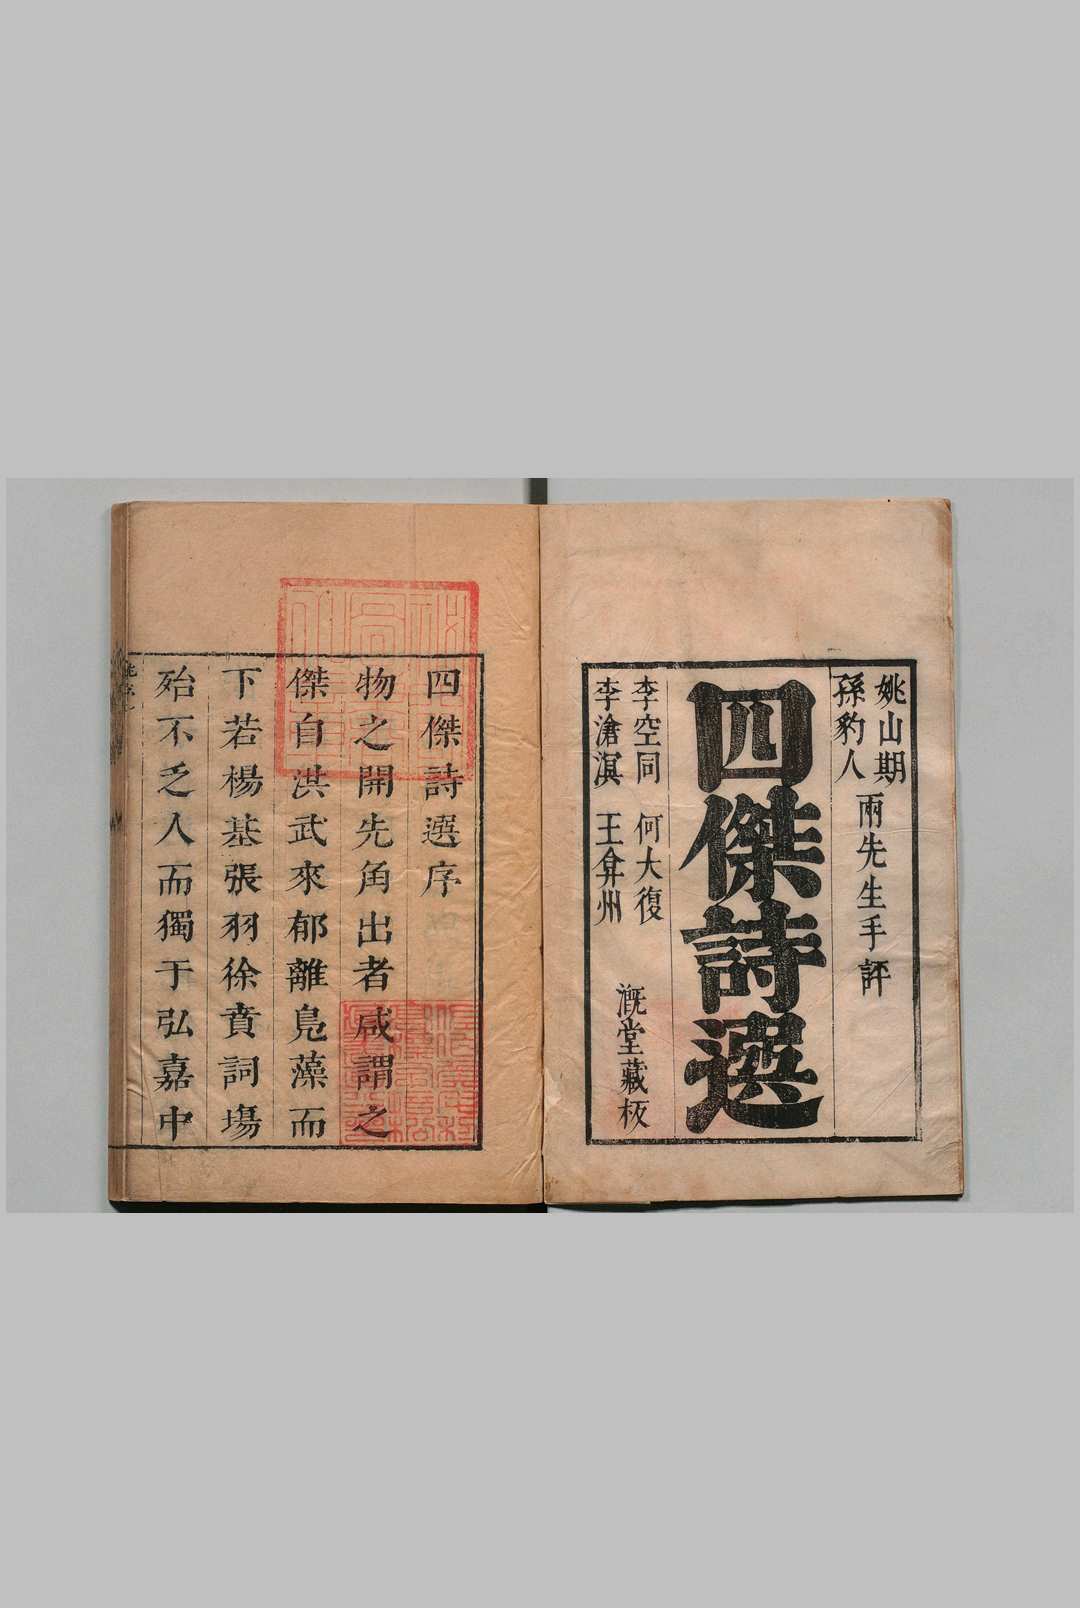 姚山期
孫豹人
兩先生手評
四傑詩選
李空同 何大復
李滄溟 王弇州
漑堂藏板
四傑詩選序
物之開先角出者咸謂之
傑自洪武來郁離鳧藻而
下若楊基張羽徐賁詞塲
殆不乏人而獨于弘嘉中